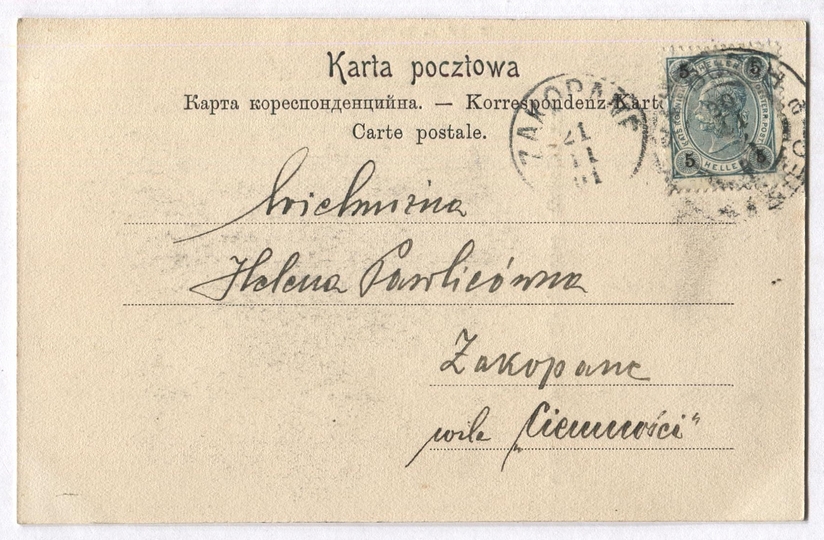 Karta pocztowa
Карта кореспонденцийна. — Korrespondenz-Karte
Carte postale.
ZAKOPANE
21
5
5
5
5
HELLER
Wielmożna
Helena Pawlicówna
Zakopane
wila „Ciemności"